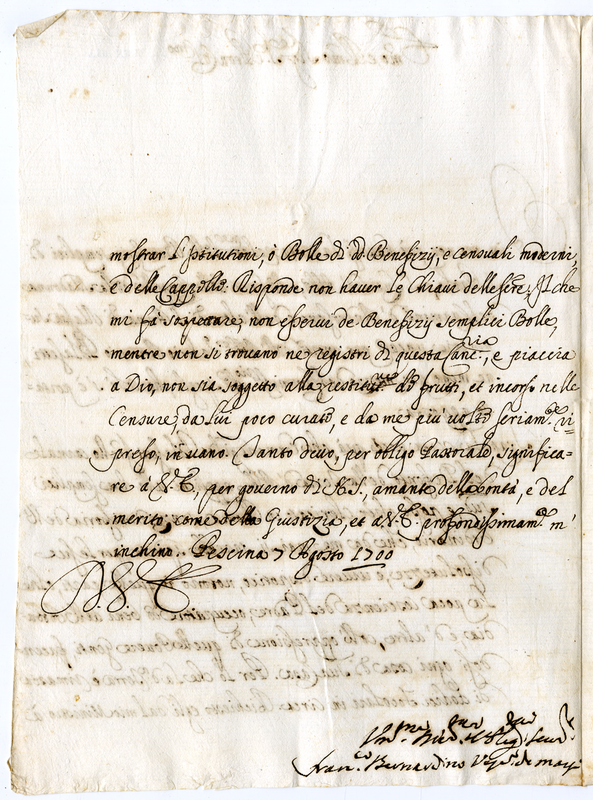 mostrar l'Istitutioni, ò Bolle di dd Benefizij, e censuali moderni,
e delle Cappelle: Risponde non haver le Chiavi delle sere; Il che
mi fà sospettare, non esservi de Benefizij semplici Bolle,
mentre non si trovano ne registri di questa Canc.ria, e piaccia
a Dio, non sia soggetto alla restitut.ne de frutti, et incorso nelle
Censure, da lui poco curate, e da me più volte seriam.te ri=
preso, in vano. Tanto devo, per obligo Pastorale, significa=
re à V.E., per governo di N.S., amante della bontà, e del
merito, come della Giustizia, et a V.E. profondissimam.te m'
inchino. Pescina 7 Agosto 1700
D.V.E.
Serv.
Fran.co Bernardino V.